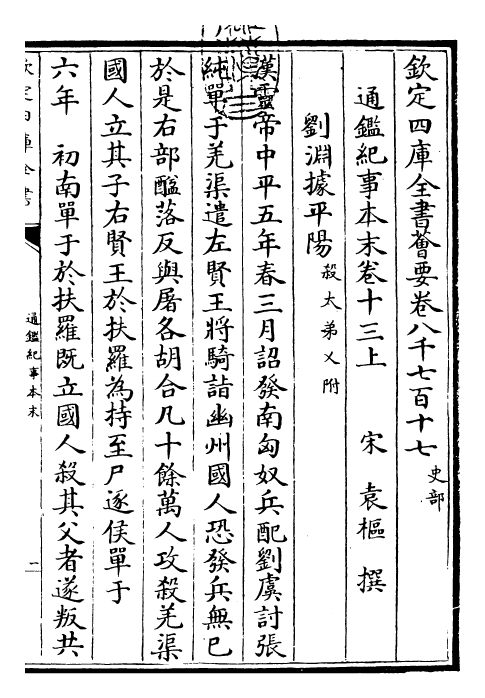 欽定四庫全書薈要卷八千七百十七 史部
通鑑紀事本末卷十三上 宋 袁樞 撰
劉淵據平陽 殺太弟乂附
漢靈帝中平五年春三月詔發南匈奴兵配劉虞討張
純單于羌渠遣左賢王將騎詣幽州國人恐發兵無已
於是右部醢落反與屠各胡合凡十餘萬人攻殺羌渠
國人立其子右賢王於扶羅為持至尸逐侯單于
六年 初南單于於扶羅既立國人殺其父者遂叛共
欽定四庫全書
通鑑紀事本末
一